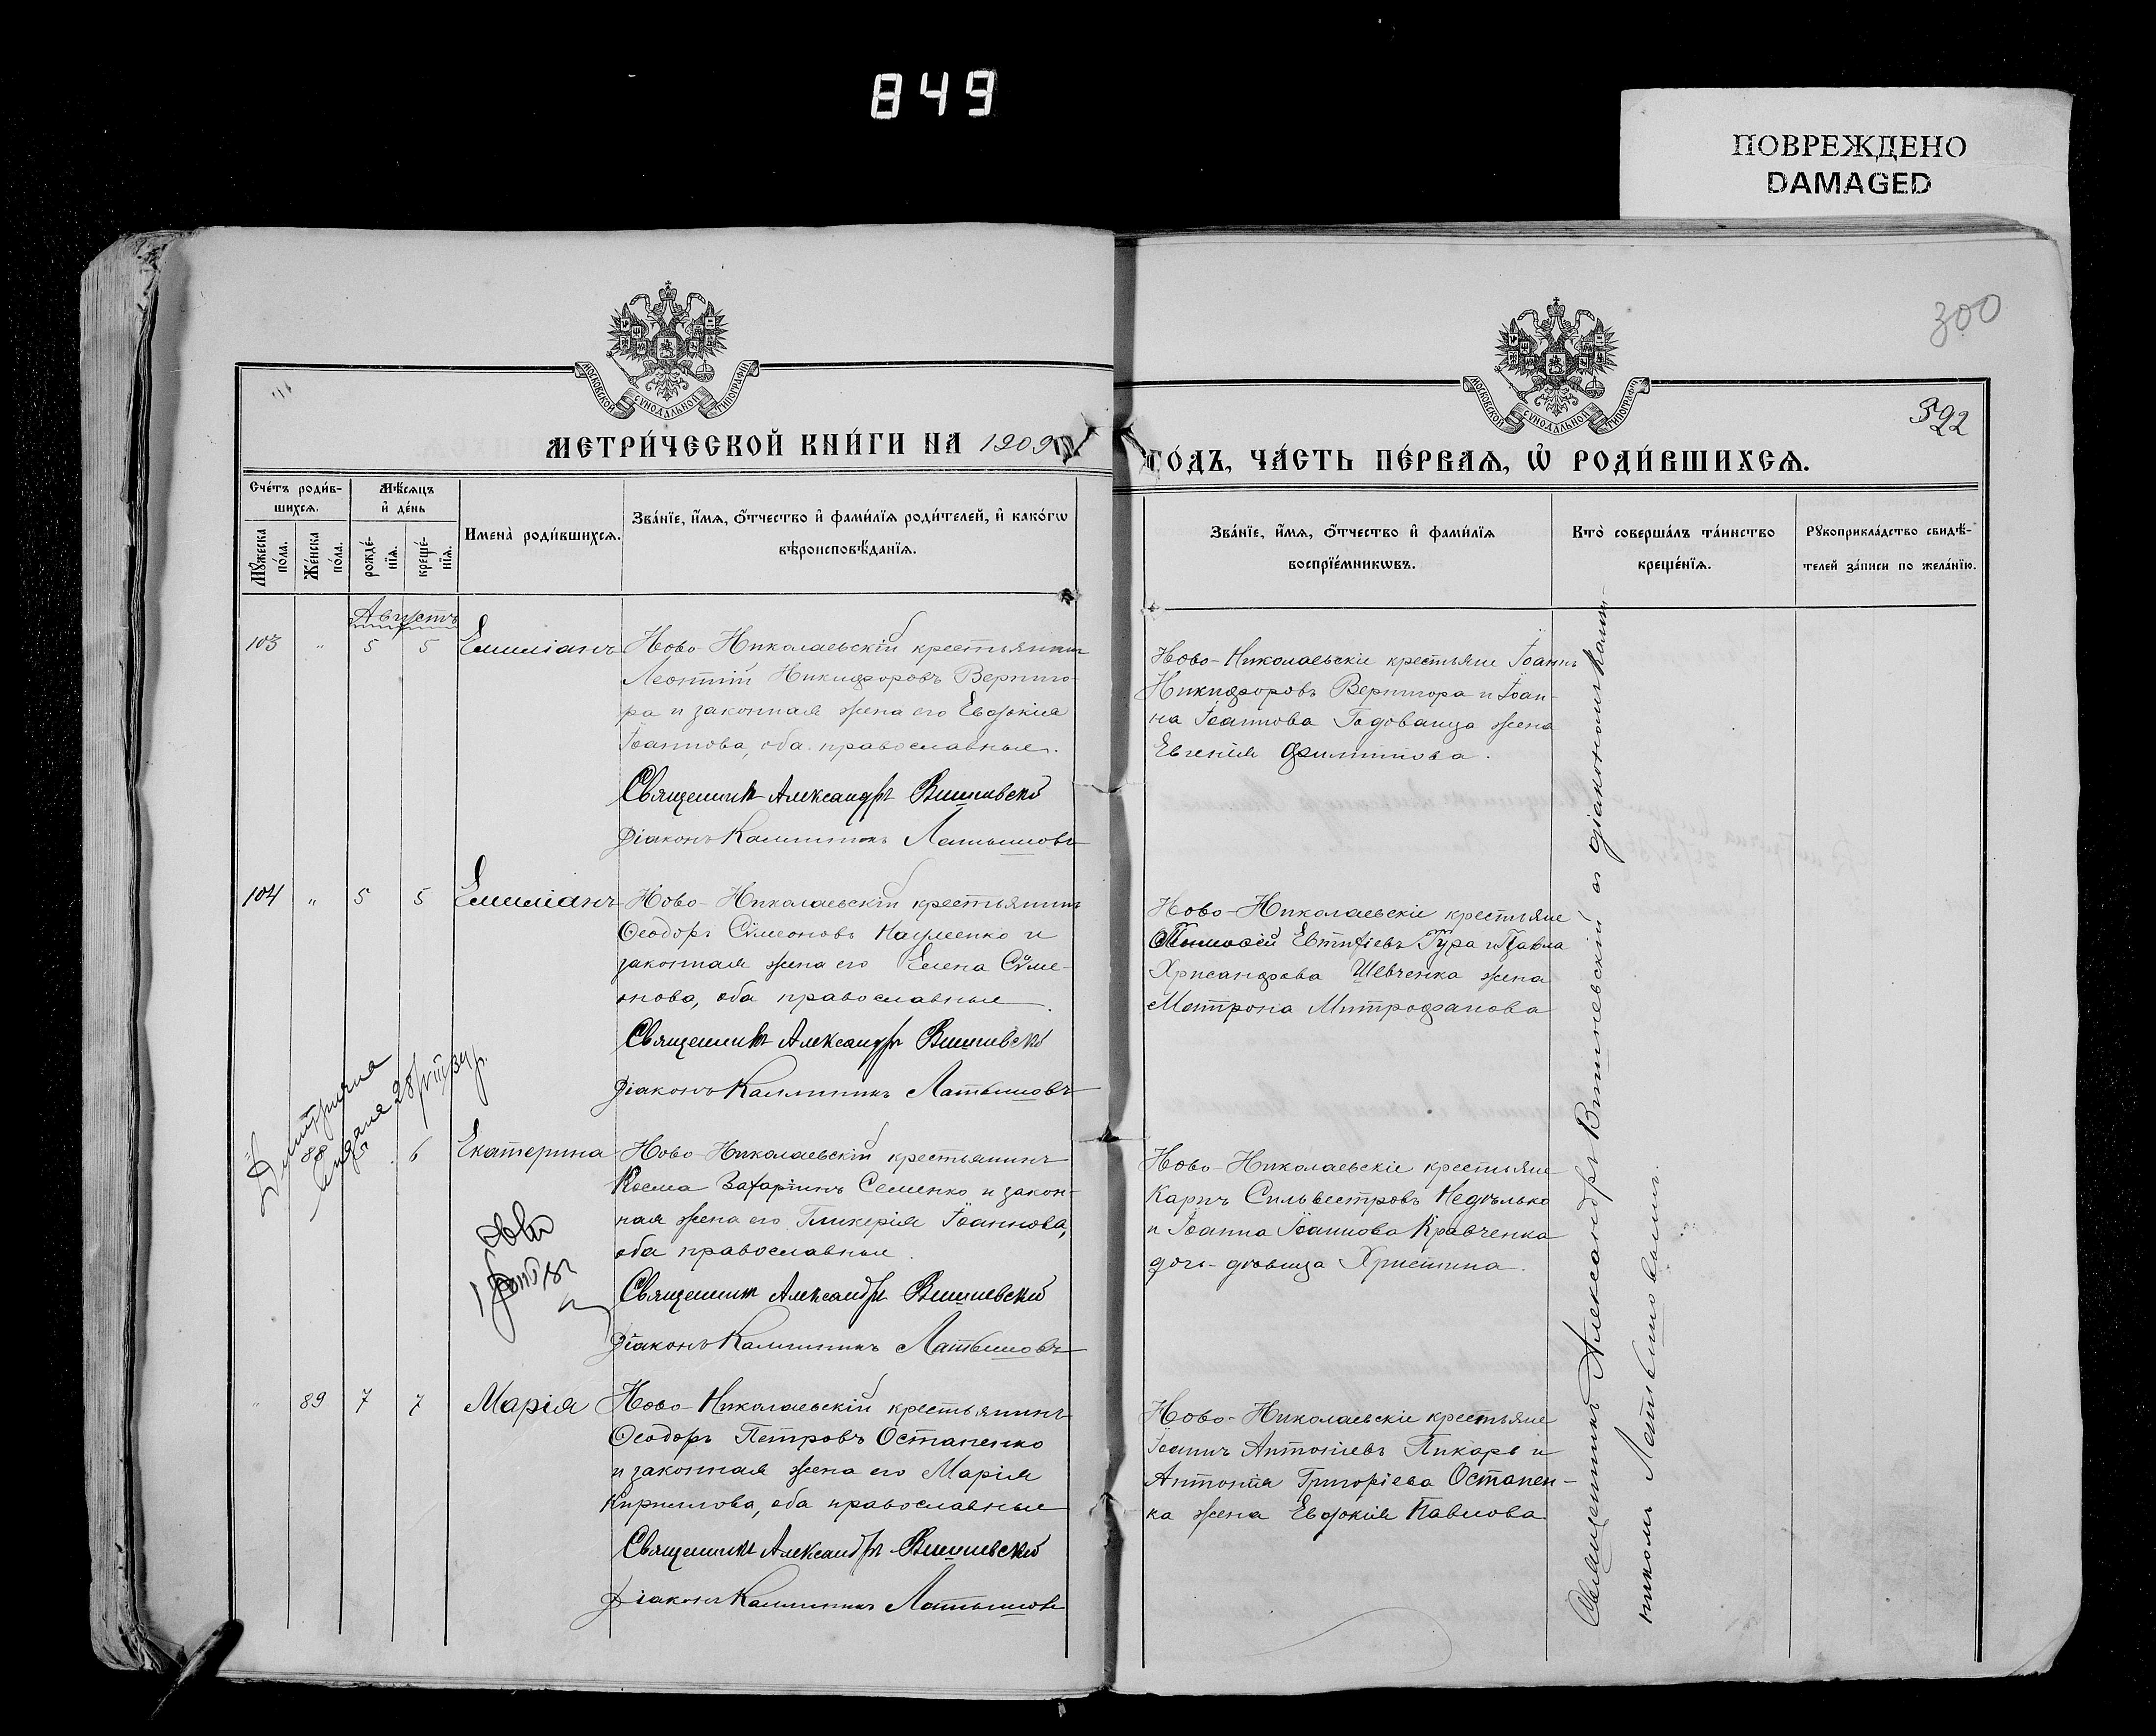 849
ПОВРЕЖДЕНО
DAMAGED
300
МОСКОВСКОЙ СѴНОДАЛЬНОЙ ТИПОГРАФІИ
МОСКОВСКОЙ СѴНОДАЛЬНОЙ ТИПОГРАФІИ
392
МЕТРИ́ЧЕСКОЙ КНИ́ГИ НА 1909
ГО́ДЪ, ЧА́СТЬ ПЕ́РВАѦ, Ѡ҆ РОДИ́ВШИХСѦ.
Сче́тъ роди́в-
шихсѧ.
Мꙋ́жеска
по́ла.
Же́нска
по́ла.
Мѣ́сѧцъ
и҆ де́нь
рожде́-
нїѧ.
креще́-
нїѧ.
Имена̀ роди́вшихсѧ.
Зва́нїе, и҆́мѧ, ѻ҆́тчество и҆ фами́лїѧ роди́телей, и҆ како́гѡ
вѣроисповѣ́данїѧ.
Зва́нїе, и҆́мѧ, ѻ҆́тчество и҆ фами́лїѧ
воспрїе́мникѡвъ.
Кто̀ соверша́лъ та́инство
креще́нїѧ.
Рꙋкоприкла́дство свидѣ́-
телей за́писи по жела́нїю.
Августъ
103 " 5 5 Емиліанъ
Ново-Николаевскій крестьянинъ
Леонтій Никифоровъ Верниго-
ра и законная жена его Евфимія
Іоаннова, оба православные.
Священникъ Александръ Вишневскій
Діаконъ Каллиникъ Латышовъ
Ново-Николаевскіе крестьяне Іоаннъ
Никифоровъ Вернигора и Іоан-
на Іоаннова Годованца жена
Евгенія Филиппова.
104 " 5 5 Емиліанъ
Ново-Николаевскій крестьянинъ
Ѳеодоръ Сѵмеоновъ Науменко и
законная жена его Елена Сѵме-
онова, оба православные.
Священникъ Александръ Вишневскій
Діаконъ Каллиникъ Латышовъ
Ново-Николаевскіе крестьяне
Тимоѳей Евтихіевъ Гура и Павла
Хрисанфова Шевченка жена
Матрона Митрофанова
видана 28/VIII 39 р.
" 88 6 Екатерина
Ново-Николаевскій крестьянинъ
Косма Захаріинъ Семенко и закон-
ная жена его Гликерія Іоаннова,
оба православные.
Священникъ Александръ Вишневскій
Діаконъ Каллиникъ Латышовъ
Ново-Николаевскіе крестьяне
Карпъ Сильвестровъ Недѣлько
и Іоанна Іоаннова Кравченка
дочь-дѣвица Христина.
" 89 7 7 Марія
Ново-Николаевскій крестьянинъ
Ѳеодоръ Петровъ Остапенко
и законная жена его Марія
Кириллова, оба православные
Священникъ Александръ Вишневскій
Діаконъ Каллиникъ Латышовъ
Ново-Николаевскіе крестьяне
Іоаннъ Антоніевъ Пикарь и
Антонія Григоріева Остапен-
ка жена Евфимія Павлова.
Священникъ Александръ Вишневскій съ діакономъ Калли-
никомъ Латышовымъ.